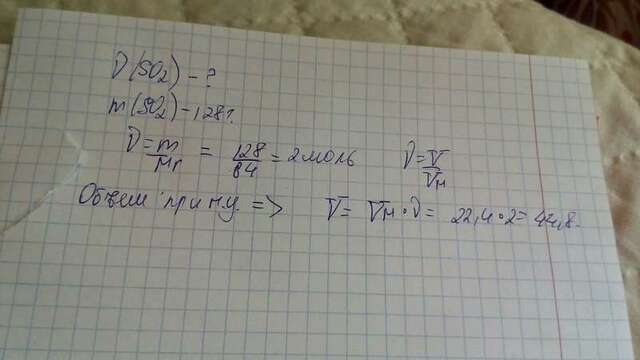 ν(SO₂) - ?
m(SO₂) - 128г.
ν = m/Mr = 128/64 = 2 моль ν = V/Vм
Объем при н.у. => V = Vм · ν = 22,4 · 2 = 44,8.